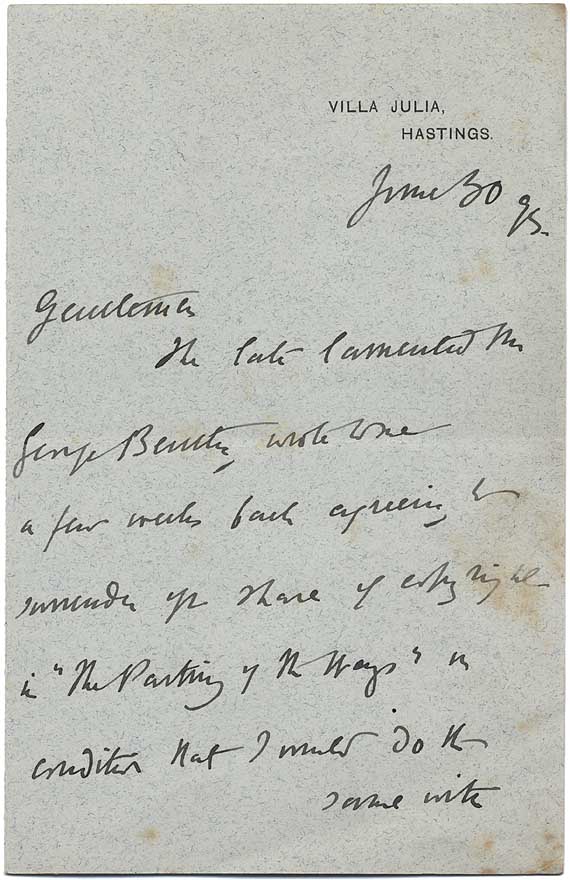 VILLA JULIA,
HASTINGS.
June 30 95.
Gentlemen
The late lamented Mr
George Bentley, wrote to me
a few weeks back agreeing to
surrender his share of copyright
in "The Parting of the Ways" on
condition that I would do the
same with